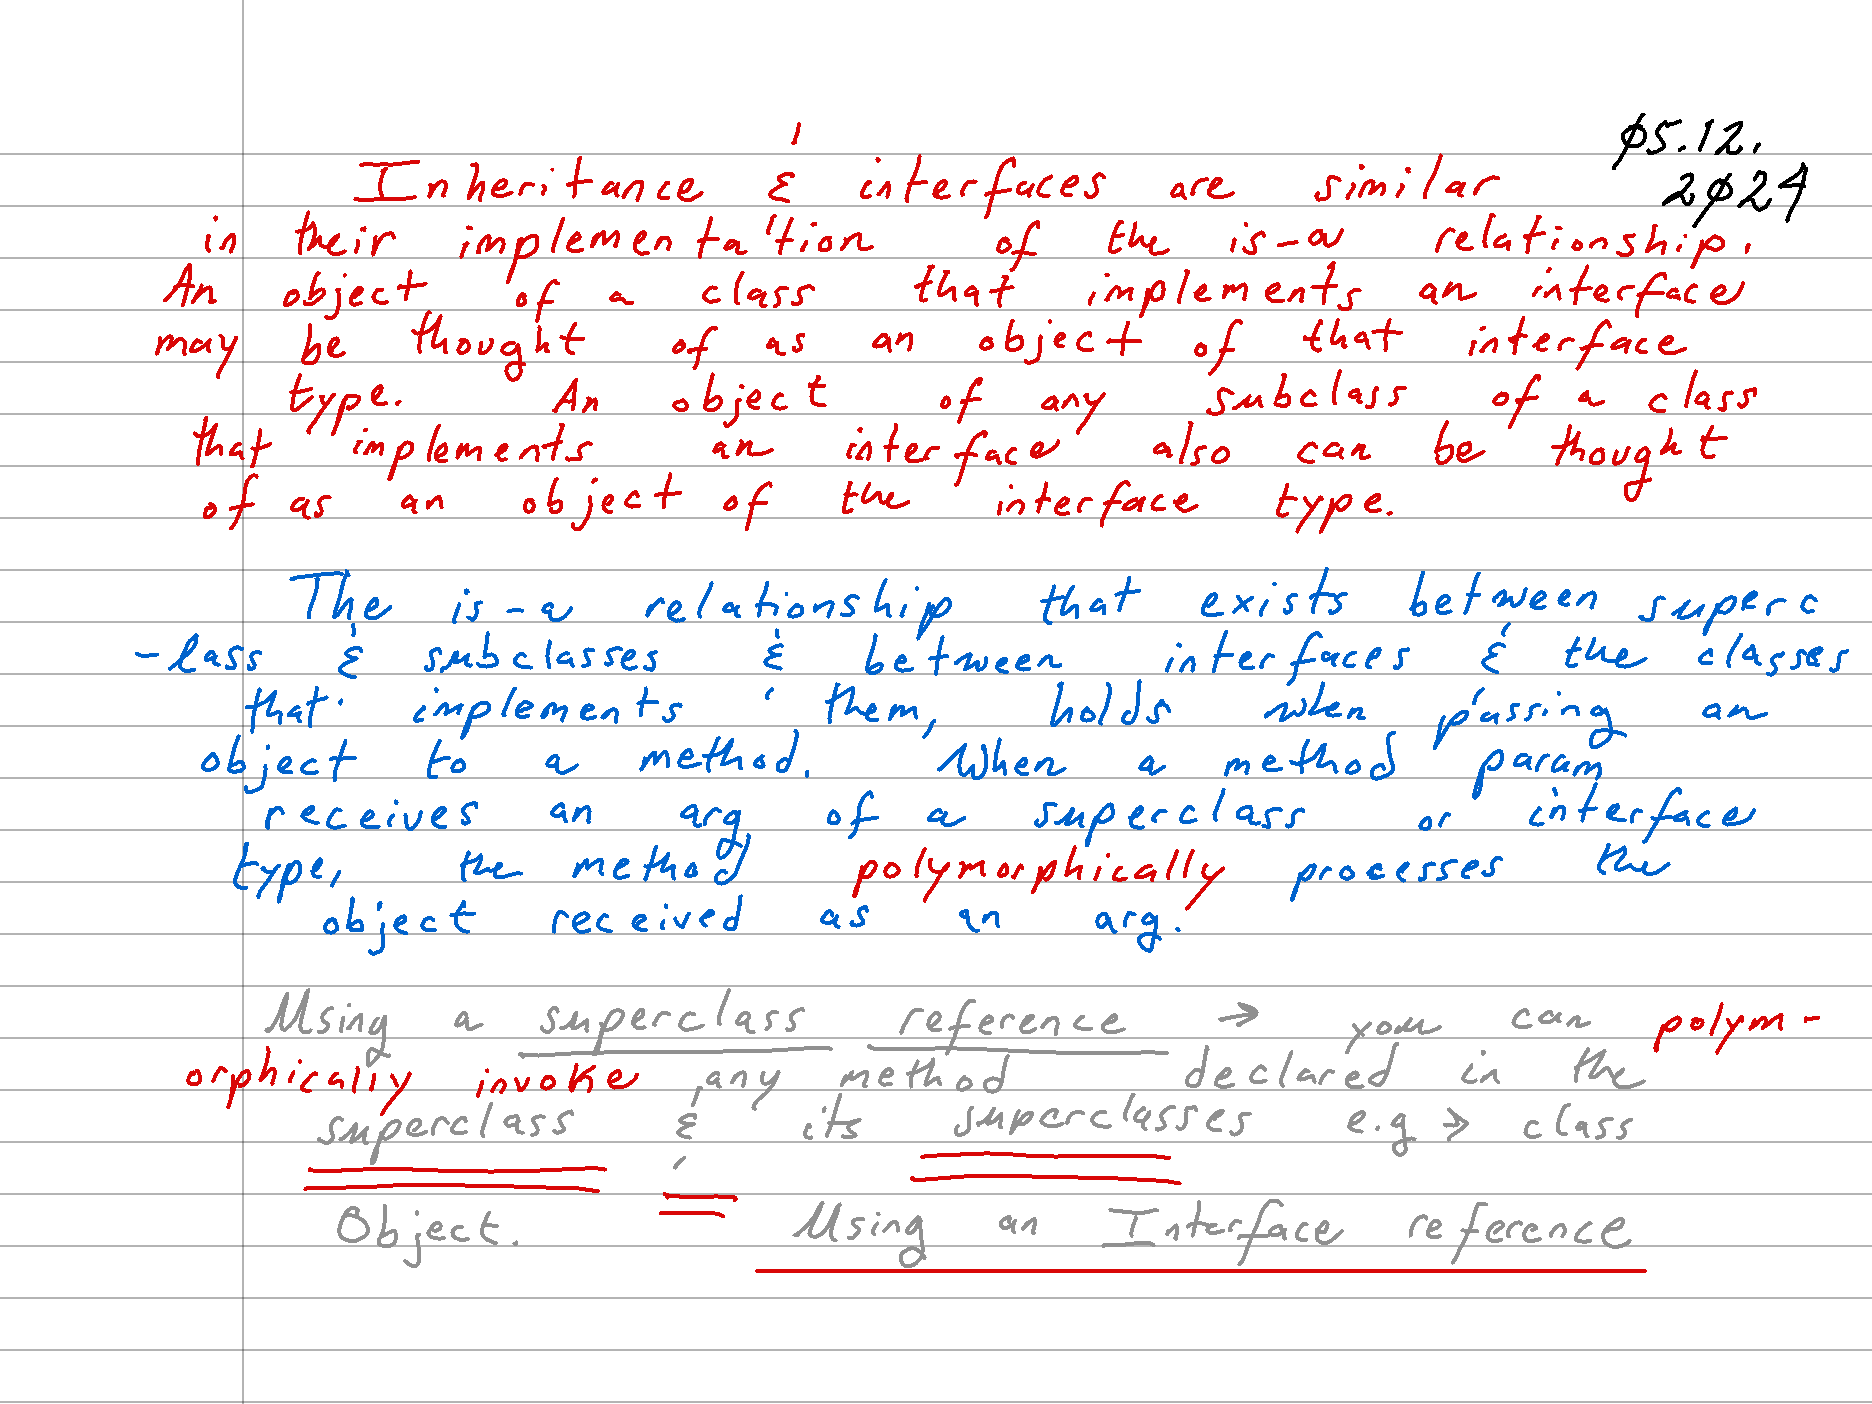 ø5.12.
2ø24
Inheritance & interfaces are similar
in their implementation of the is-a relationship.
An object of a class that implements an interface
may be thought of as an object of that interface
type. An object of any subclass of a class
that implements an interface also can be thought
of as an object of the interface type.
The is-a relationship that exists between superc
-lass & subclasses & between interfaces & the classes
that implements them, holds when passing an
object to a method. When a method param
receives an arg of a superclass or interface
type, the method polymorphically processes the
object received as an arg.
Using a superclass reference → you can polym-
orphically invoke any method declared in the
superclass & its superclasses e.g → class
Object. Using an Interface reference